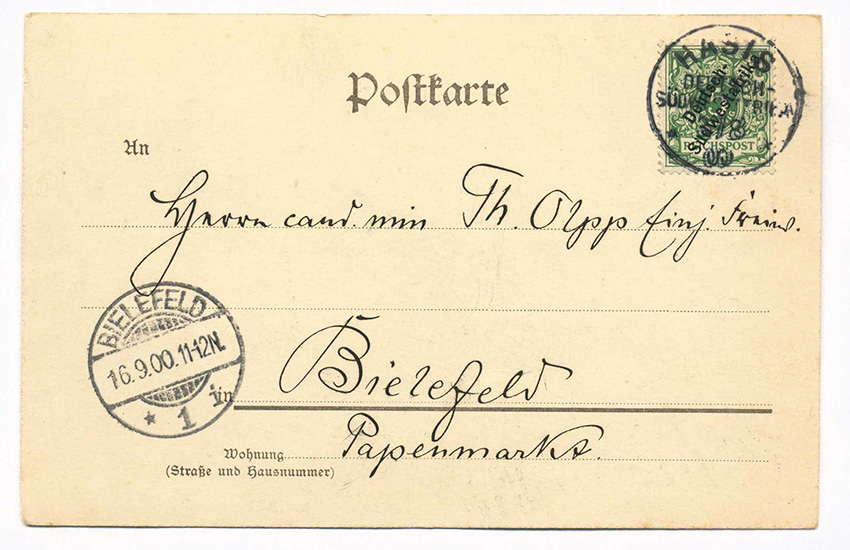 Postkarte
HASIS
Deutsch-
Südwestafrika
REICHSPOST
An
Herrn cand. min Th. Olpp Einj. Freiw.
BIELEFELD
16.9.00.11-12N.
* 1 i
in Bielefeld
Papenmarkt.
Wohnung
(Straße und Hausnummer)